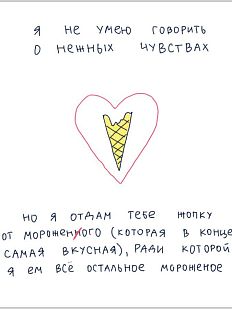 я не умею говорить
о нежных чувствах
но я отдам тебе жопку
от мороженного (которая в конце
самая вкусная), ради которой
я ем всё остальное мороженое